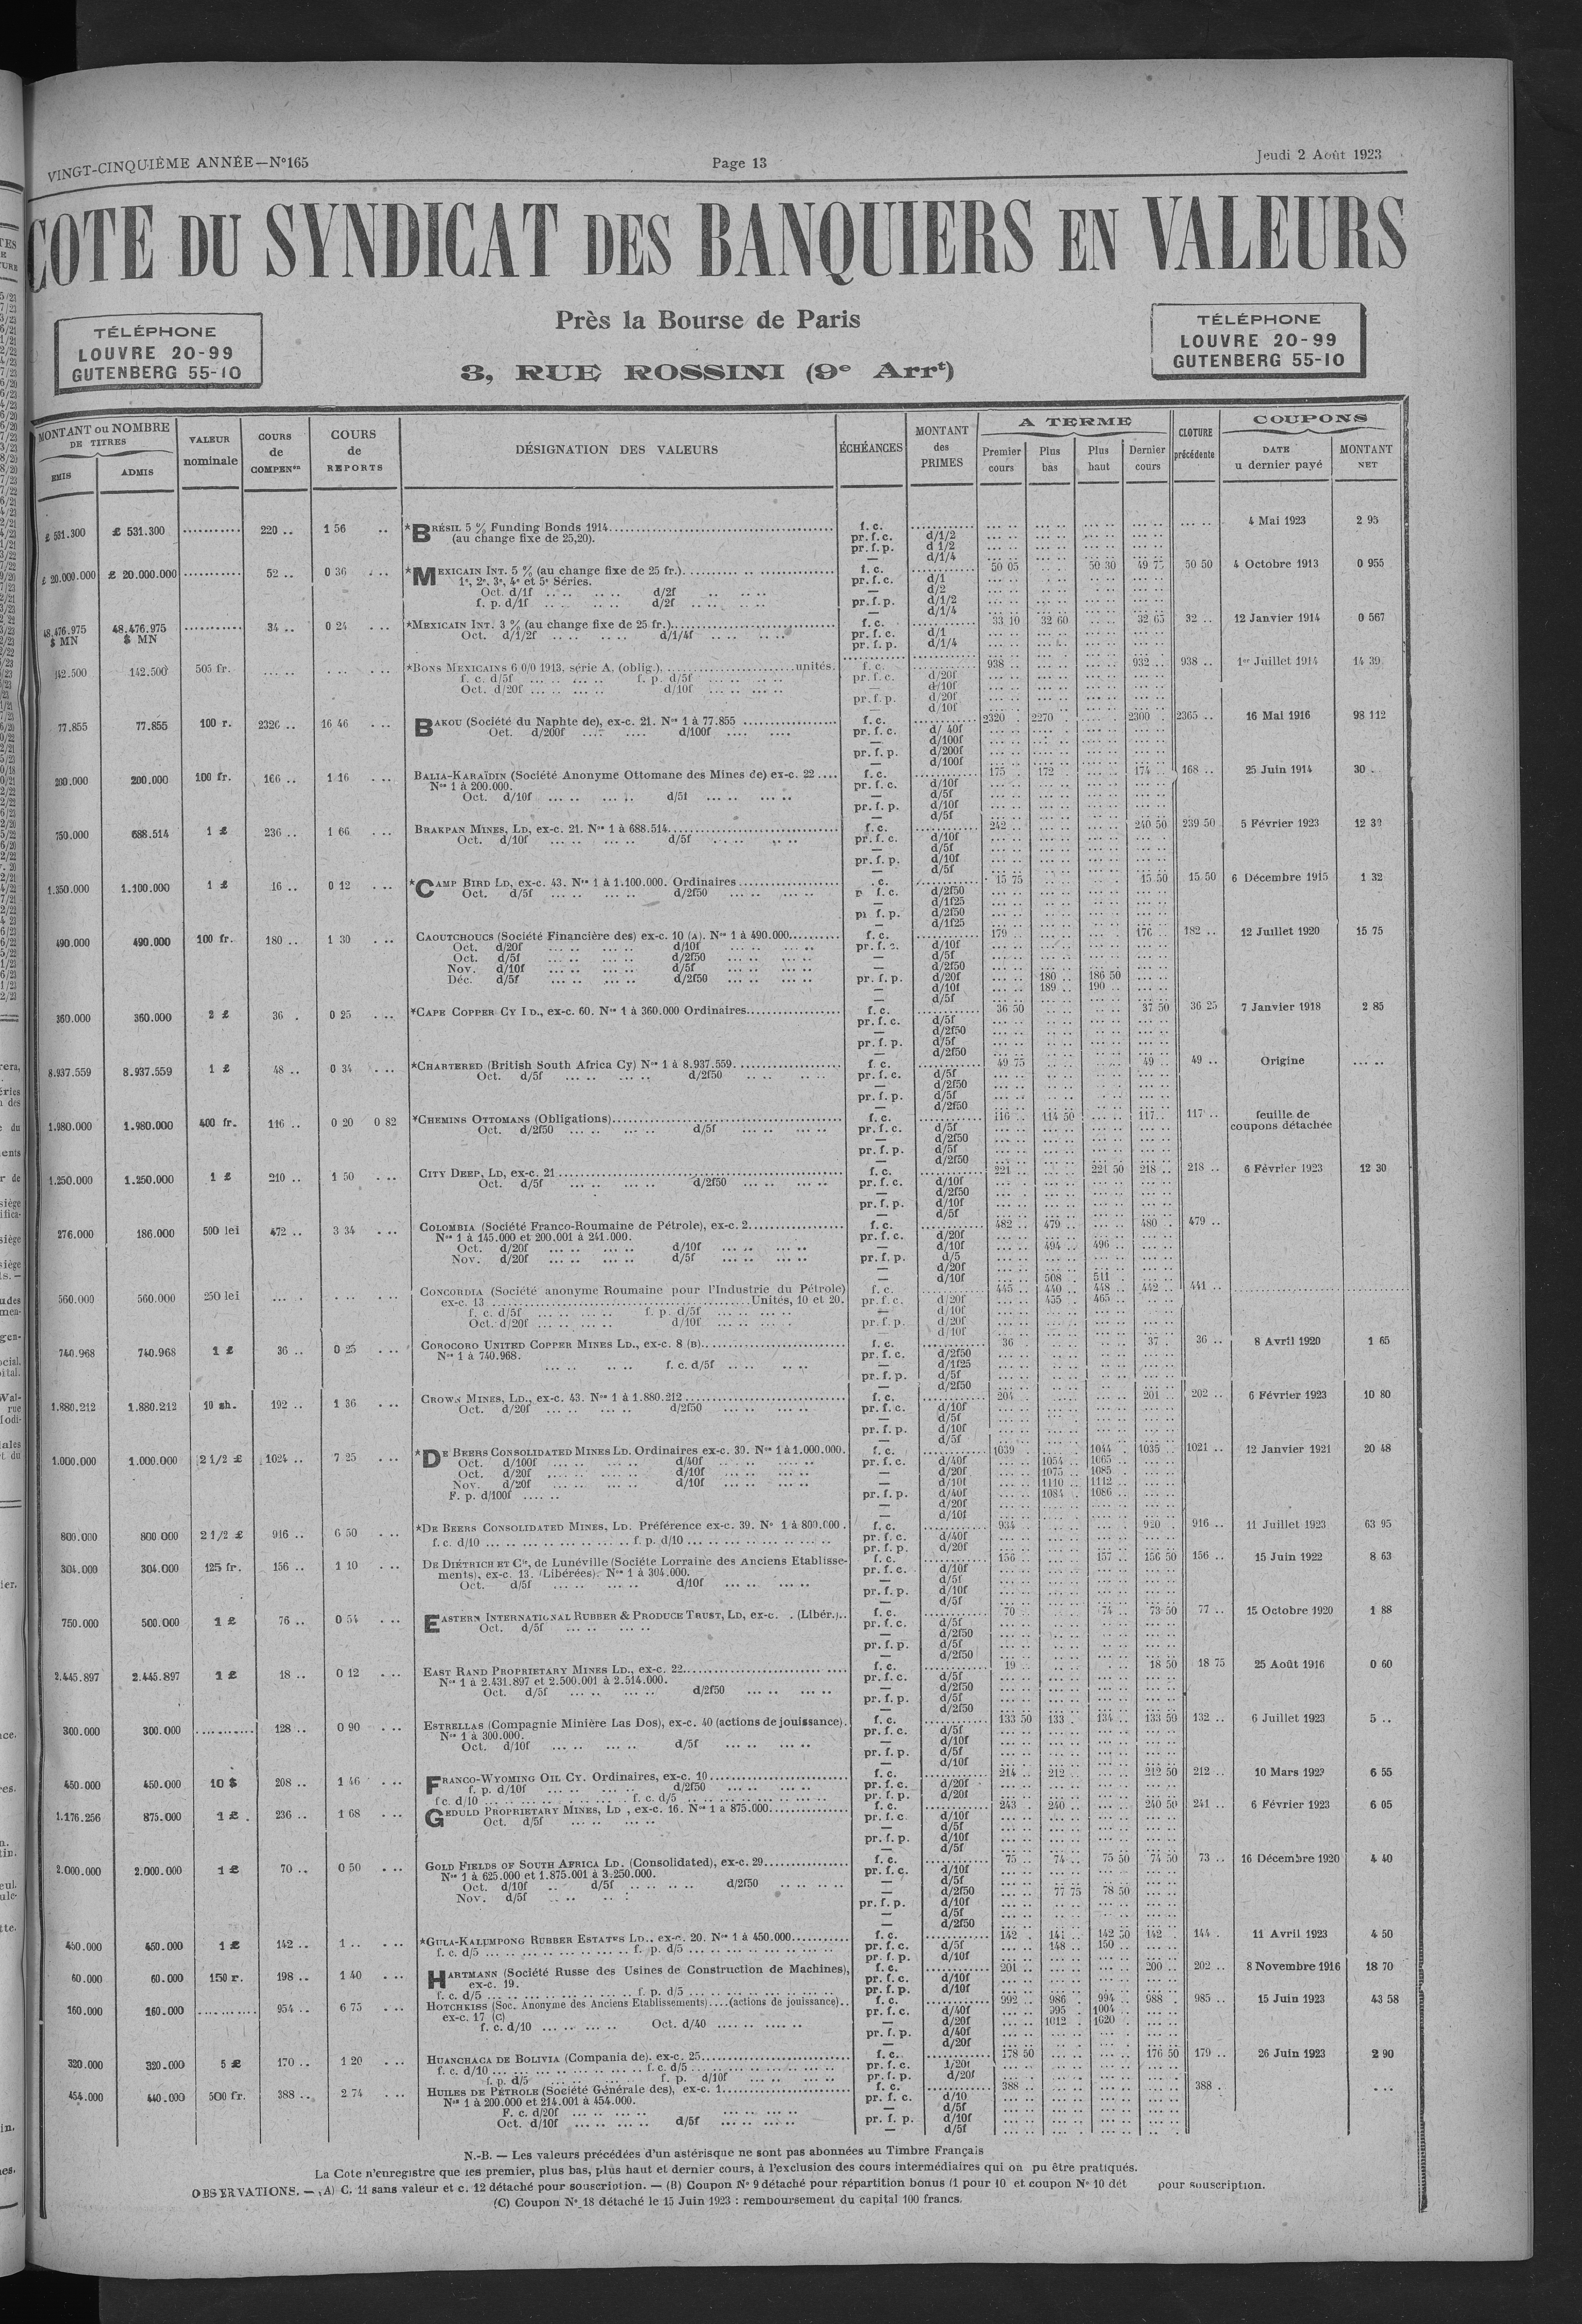 VINGT-CINQUIÈME ANNÉE—N°165
Page 13
Jeudi 2 Août 1923
COTE DU SYNDICAT DES BANQUIERS EN VALEURS
Près la Bourse de Paris
3, RUE ROSSINI (9e Arrt)
TÉLÉPHONE
LOUVRE 20-99
GUTENBERG 55-10
TÉLÉPHONE
LOUVRE 20-99
GUTENBERG 55-10
MONTANT ou NOMBRE DE TITRES
ÉMIS ADMIS
VALEUR nominale
COURS de COMPENon
COURS de REPORTS
DÉSIGNATION DES VALEURS
ÉCHÉANCES
MONTANT des PRIMES
A TERME
Premier cours Plus bas Plus haut Dernier cours
CLOTURE précédente
COUPONS
DATE u dernier payé
MONTANT NET
£ 531.300 £ 531.300 220 .. 1 56 *BRÉSIL 5 % Funding Bonds 1914 f. c. 4 Mai 1923 2 95
(au change fixe de 25,20). pr. f. c. d/1/2
pr. f. p. d 1/2
— d/1/4
£ 20.000.000 £ 20.000.000 52 .. 0 36 *MEXICAIN INT. 5 % (au change fixe de 25 fr.) f. c. 50 05 50 30 49 75 50 50 4 Octobre 1913 0 955
1e, 2e, 3e, 4e et 5e Séries. pr. f. c. d/1
Oct. d/1f d/2f — d/2
f. p. d/1f d/2f pr. f. p. d/1/2
— d/1/4
48.476.975 $ MN 48.476.975 $ MN 34 .. 0 24 *MEXICAIN INT. 3 % (au change fixe de 25 fr.) f. c. 33 10 32 60 32 65 32 .. 12 Janvier 1914 0 567
Oct. d/1/2f d/1/4f pr. f. c. d/1
pr. f. p. d/1/4
142.500 142.500 505 fr. *BONS MEXICAINS 6 0/0 1913, série A, (oblig.) unités. f. c. 938 .. 932 .. 938 .. 1er Juillet 1914 14 39
f. c. d/5f f. p. d/5f pr. f. c. d/20f
Oct. d/20f d/10f — d/10f
pr. f. p. d/20f
— d/10f
77.855 77.855 100 r. 2326 .. 16 46 BAKOU (Société du Naphte de), ex-c. 21. Nos 1 à 77.855 f. c. 2320 2270 2300 2365 .. 16 Mai 1916 98 112
Oct. d/200f d/100f pr. f. c. d/ 40f
— d/100f
pr. f. p. d/200f
— d/100f
200.000 200.000 100 fr. 166 .. 1 16 BALIA-KARAÏDIN (Société Anonyme Ottomane des Mines de) ex-c. 22 f. c. 175 172 174 168 .. 25 Juin 1914 30
Nos 1 à 200.000. pr. f. c. d/10f
Oct. d/10f d/5f — d/5f
pr. f. p. d/10f
— d/5f
750.000 688.514 1 £ 236 .. 1 66 BRAKPAN MINES, LD, ex-c. 21. Nos 1 à 688.514 f. c. 242 240 50 239 50 5 Février 1923 12 32
Oct. d/10f d/5f pr. f. c. d/10f
— d/5f
pr. f. p. d/10f
— d/5f
1.350.000 1.100.000 1 £ 16 .. 0 12 *CAMP BIRD LD, ex-c. 43. Nos 1 à 1.100.000. Ordinaires . c. 15 75 15 50 15 50 6 Décembre 1915 1 32
Oct. d/5f d/2f50 p f. c. d/2f50
— d/1f25
pr f. p. d/2f50
— d/1f25
490.000 490.000 100 fr. 180 .. 1 30 CAOUTCHOUCS (Société Financière des) ex-c. 10 (A). Nos 1 à 490.000 f. c. 179 176 182 .. 12 Juillet 1920 15 75
Oct. d/20f d/10f pr. f. c. d/10f
Oct. d/5f d/2f50 — d/5f
Nov. d/10f d/5f — d/2f50
Déc. d/5f d/2f50 pr. f. p. d/20f 180 .. 186 50
— d/10f 189 .. 190 ..
— d/5f
360.000 360.000 2 £ 36 . 0 25 *CAPE COPPER CY LD., ex-c. 60. Nos 1 à 360.000 Ordinaires f. c. 36 50 37 50 36 25 7 Janvier 1918 2 85
pr. f. c. d/5f
— d/2f50
pr. f. p. d/5f
— d/2f50
8.937.559 8.937.559 1 £ 48 .. 0 34 *CHARTERED (British South Africa Cy) Nos 1 à 8.937.559 f. c. 49 75 49 .. 49 .. Origine
Oct. d/5f d/2f50 pr. f. c. d/5f
— d/2f50
pr. f. p. d/5f
— d/2f50
1.980.000 1.980.000 400 fr. 116 .. 0 20 0 82 *CHEMINS OTTOMANS (Obligations) f. c. 116 .. 114 50 117 .. 117 .. feuille de coupons détachée
Oct. d/2f50 d/5f pr. f. c. d/5f
— d/2f50
pr. f. p. d/5f
— d/2f50
1.250.000 1.250.000 1 £ 210 .. 1 50 CITY DEEP, LD, ex-c. 21 f. c. 221 .. 221 50 218 .. 218 .. 6 Février 1923 12 30
Oct. d/5f d/2f50 pr. f. c. d/10f
— d/2f50
pr. f. p. d/10f
— d/5f
276.000 186.000 500 lei 472 .. 3 34 COLOMBIA (Société Franco-Roumaine de Pétrole), ex-c. 2 f. c. 482 .. 479 .. 480 479 ..
Nos 1 à 145.000 et 200.001 à 241.000. pr. f. c. d/20f
Oct. d/20f d/10f — d/10f 494 .. 496 ..
Nov. d/20f d/5f pr. f. p. d/5
— d/20f
— d/10f 508 511
560.000 560.000 250 lei CONCORDIA (Société anonyme Roumaine pour l'Industrie du Pétrole) f. c. 445 .. 440 .. 448 .. 442 .. 441 ..
ex-c. 13 Unités, 10 et 20. pr. f. c. d/20f 455 .. 465 ..
f. c. d/5f f. p. d/5f — d/10f
Oct. d/20f d/10f pr. f. p. d/20f
— d/10f
740.968 740.968 1 £ 36 .. 0 25 COROCORO UNITED COPPER MINES LD., ex-c. 8 (B) f. c. 36 37 . 36 .. 8 Avril 1920 1 65
Nos 1 à 740.968. pr. f. c. d/2f50
f. c. d/5f — d/1f25
pr. f. p. d/5f
— d/2f50
1.880.212 1.880.212 10 sh. 192 .. 1 36 CROWN MINES, LD., ex-c. 43. Nos 1 à 1.880.212 f. c. 204 201 202 .. 6 Février 1923 10 80
Oct. d/20f d/2f50 pr. f. c. d/10f
— d/5f
pr. f. p. d/10f
— d/5f
1.000.000 1.000.000 2 1/2 £ 1024 .. 7 25 *DE BEERS CONSOLIDATED MINES LD. Ordinaires ex-c. 39. Nos 1 à 1.000.000. f. c. 1039 1044 1035 1021 .. 12 Janvier 1921 20 48
Oct. d/100f d/40f pr. f. c. d/40f 1054 1065
Oct. d/20f d/10f — d/20f 1075 1085
Nov. d/20f d/10f — d/10f 1110 1112
F. p. d/100f pr. f. p. d/40f 1084 1086
— d/20f
— d/10f
800.000 800 000 2 1/2 £ 916 .. 6 50 *DE BEERS CONSOLIDATED MINES, LD. Préférence ex-c. 39. Nos 1 à 800.000 . f. c. 934 920 916 .. 11 Juillet 1923 63 95
f. c. d/10 f. p. d/10 pr. f. c. d/40f
pr. f. p. d/20f
304.000 304.000 125 fr. 156 .. 1 10 DE DIÉTRICH ET Cie, de Lunéville (Société Lorraine des Anciens Etablisse- f. c. 156 157 156 50 156 .. 15 Juin 1922 8 63
ments), ex-c. 13. (Libérées). Nos 1 à 304.000. pr. f. c. d/10f
Oct. d/5f d/10f — d/5f
pr. f. p. d/10f
— d/5f
750.000 500.000 1 £ 76 .. 0 54 EASTERN INTERNATIONAL RUBBER & PRODUCE TRUST, LD, ex-c. . (Libér.) f. c. 70 74 73 50 77 .. 15 Octobre 1920 1 88
Oct. d/5f pr. f. c. d/5f
— d/2f50
pr. f. p. d/5f
— d/2f50
2.445.897 2.445.897 1 £ 18 .. 0 12 EAST RAND PROPRIETARY MINES LD., ex-c. 22 f. c. 19 18 50 18 75 25 Août 1916 0 60
Nos 1 à 2.431.897 et 2.500.001 à 2.514.000. pr. f. c. d/5f
Oct. d/5f d/2f50 — d/2f50
pr. f. p. d/5f
— d/2f50
300.000 300.000 128 .. 0 90 ESTRELLAS (Compagnie Minière Las Dos), ex-c. 40 (actions de jouissance). f. c. 133 50 133 . 134 .. 133 50 132 .. 6 Juillet 1923 5 ..
Nos 1 à 300.000. pr. f. c. d/5f
Oct. d/10f d/5f — d/10f
pr. f. p. d/5f
— d/10f
450.000 450.000 10 $ 208 .. 1 46 FRANCO-WYOMING OIL CY. Ordinaires, ex-c. 10 f. c. 214 212 212 50 212 .. 10 Mars 1922 6 55
f. p. d/10f d/2f50 pr. f. c. d/20f
f c. d/10 f. c. d/5 pr. f. p. d/20f
1.176.256 875.000 1 £ 236 .. 1 68 GEDULD PROPRIETARY MINES, LD , ex-c. 16. Nos 1 à 875.000 f. c. 243 240 240 50 241 .. 6 Février 1923 6 05
Oct. d/5f pr. f. c. d/10f
— d/5f
pr. f. p. d/10f
— d/5f
2.000.000 2.000.000 1 £ 70 .. 0 50 GOLD FIELDS OF SOUTH AFRICA LD. (Consolidated), ex-c. 29 f. c. 75 74 75 50 74 50 73 .. 16 Décembre 1920 4 40
Nos 1 à 625.000 et 1.875.001 à 3.250.000. pr. f. c. d/10f
Oct. d/10f d/5f d/2f50 — d/5f
Nov. d/5f — d/2f50 77 75 78 50
pr. f. p. d/10f
— d/5f
— d/2f50
450.000 450.000 1 £ 142 .. 1 .. *GULA-KALUMPONG RUBBER ESTATES LD., ex-c. 20. Nos 1 à 450.000 f. c. 142 141 142 50 142 144 . 11 Avril 1923 4 50
f. c. d/5 f. p. d/5 pr. f. c. d/5f 148 .. 150 ..
pr. f. p. d/10f
60.000 60.000 150 r. 198 .. 1 40 HARTMANN (Société Russe des Usines de Construction de Machines), f. c. 201 200 202 .. 8 Novembre 1916 18 70
ex-c. 19. pr. f. c. d/10f
f. c. d/5 f. p. d/5 pr. f. p. d/10f
160.000 160.000 954 .. 6 75 HOTCHKISS (Soc. Anonyme des Anciens Etablissements) (actions de jouissance) f. c. 992 986 994 988 985 .. 15 Juin 1923 43 58
ex-c. 17 (C) pr. f. c. d/40f 995 1004
f. c. d/10 Oct. d/40 — d/20f 1012 1020
pr. f. p. d/40f
— d/20f
320.000 320.000 5 £ 170 .. 1 20 HUANCHACA DE BOLIVIA (Compania de). ex-c. 25 f. c. 178 50 176 50 179 .. 26 Juin 1923 2 90
f. c. d/10 f. c. d/5 pr. f. c. d/20f
f. p. d/5 f. p. d/10f pr. f. p. d/20f
454.000 440.000 500 fr. 388 .. 2 74 HUILES DE PÉTROLE (Société Générale des), ex-c. 1 f. c. 388 388 .
Nos 1 à 200.000 et 214.001 à 454.000. pr. f. c. d/10
F. c. d/20f — d/5f
Oct. d/10f d/5f pr. f. p. d/10f
— d/5f
N.-B. — Les valeurs précédées d'un astérisque ne sont pas abonnées au Timbre Français
La Cote n'enregistre que les premier, plus bas, plus haut et dernier cours, à l'exclusion des cours intermédiaires qui on pu être pratiqués.
OBSERVATIONS. — (A) C. 11 sans valeur et c. 12 détaché pour souscription. — (B) Coupon No 9 détaché pour répartition bonus (1 pour 10 et coupon No 10 dét pour souscription.
(C) Coupon No 18 détaché le 15 Juin 1923 : remboursement du capital 100 francs.